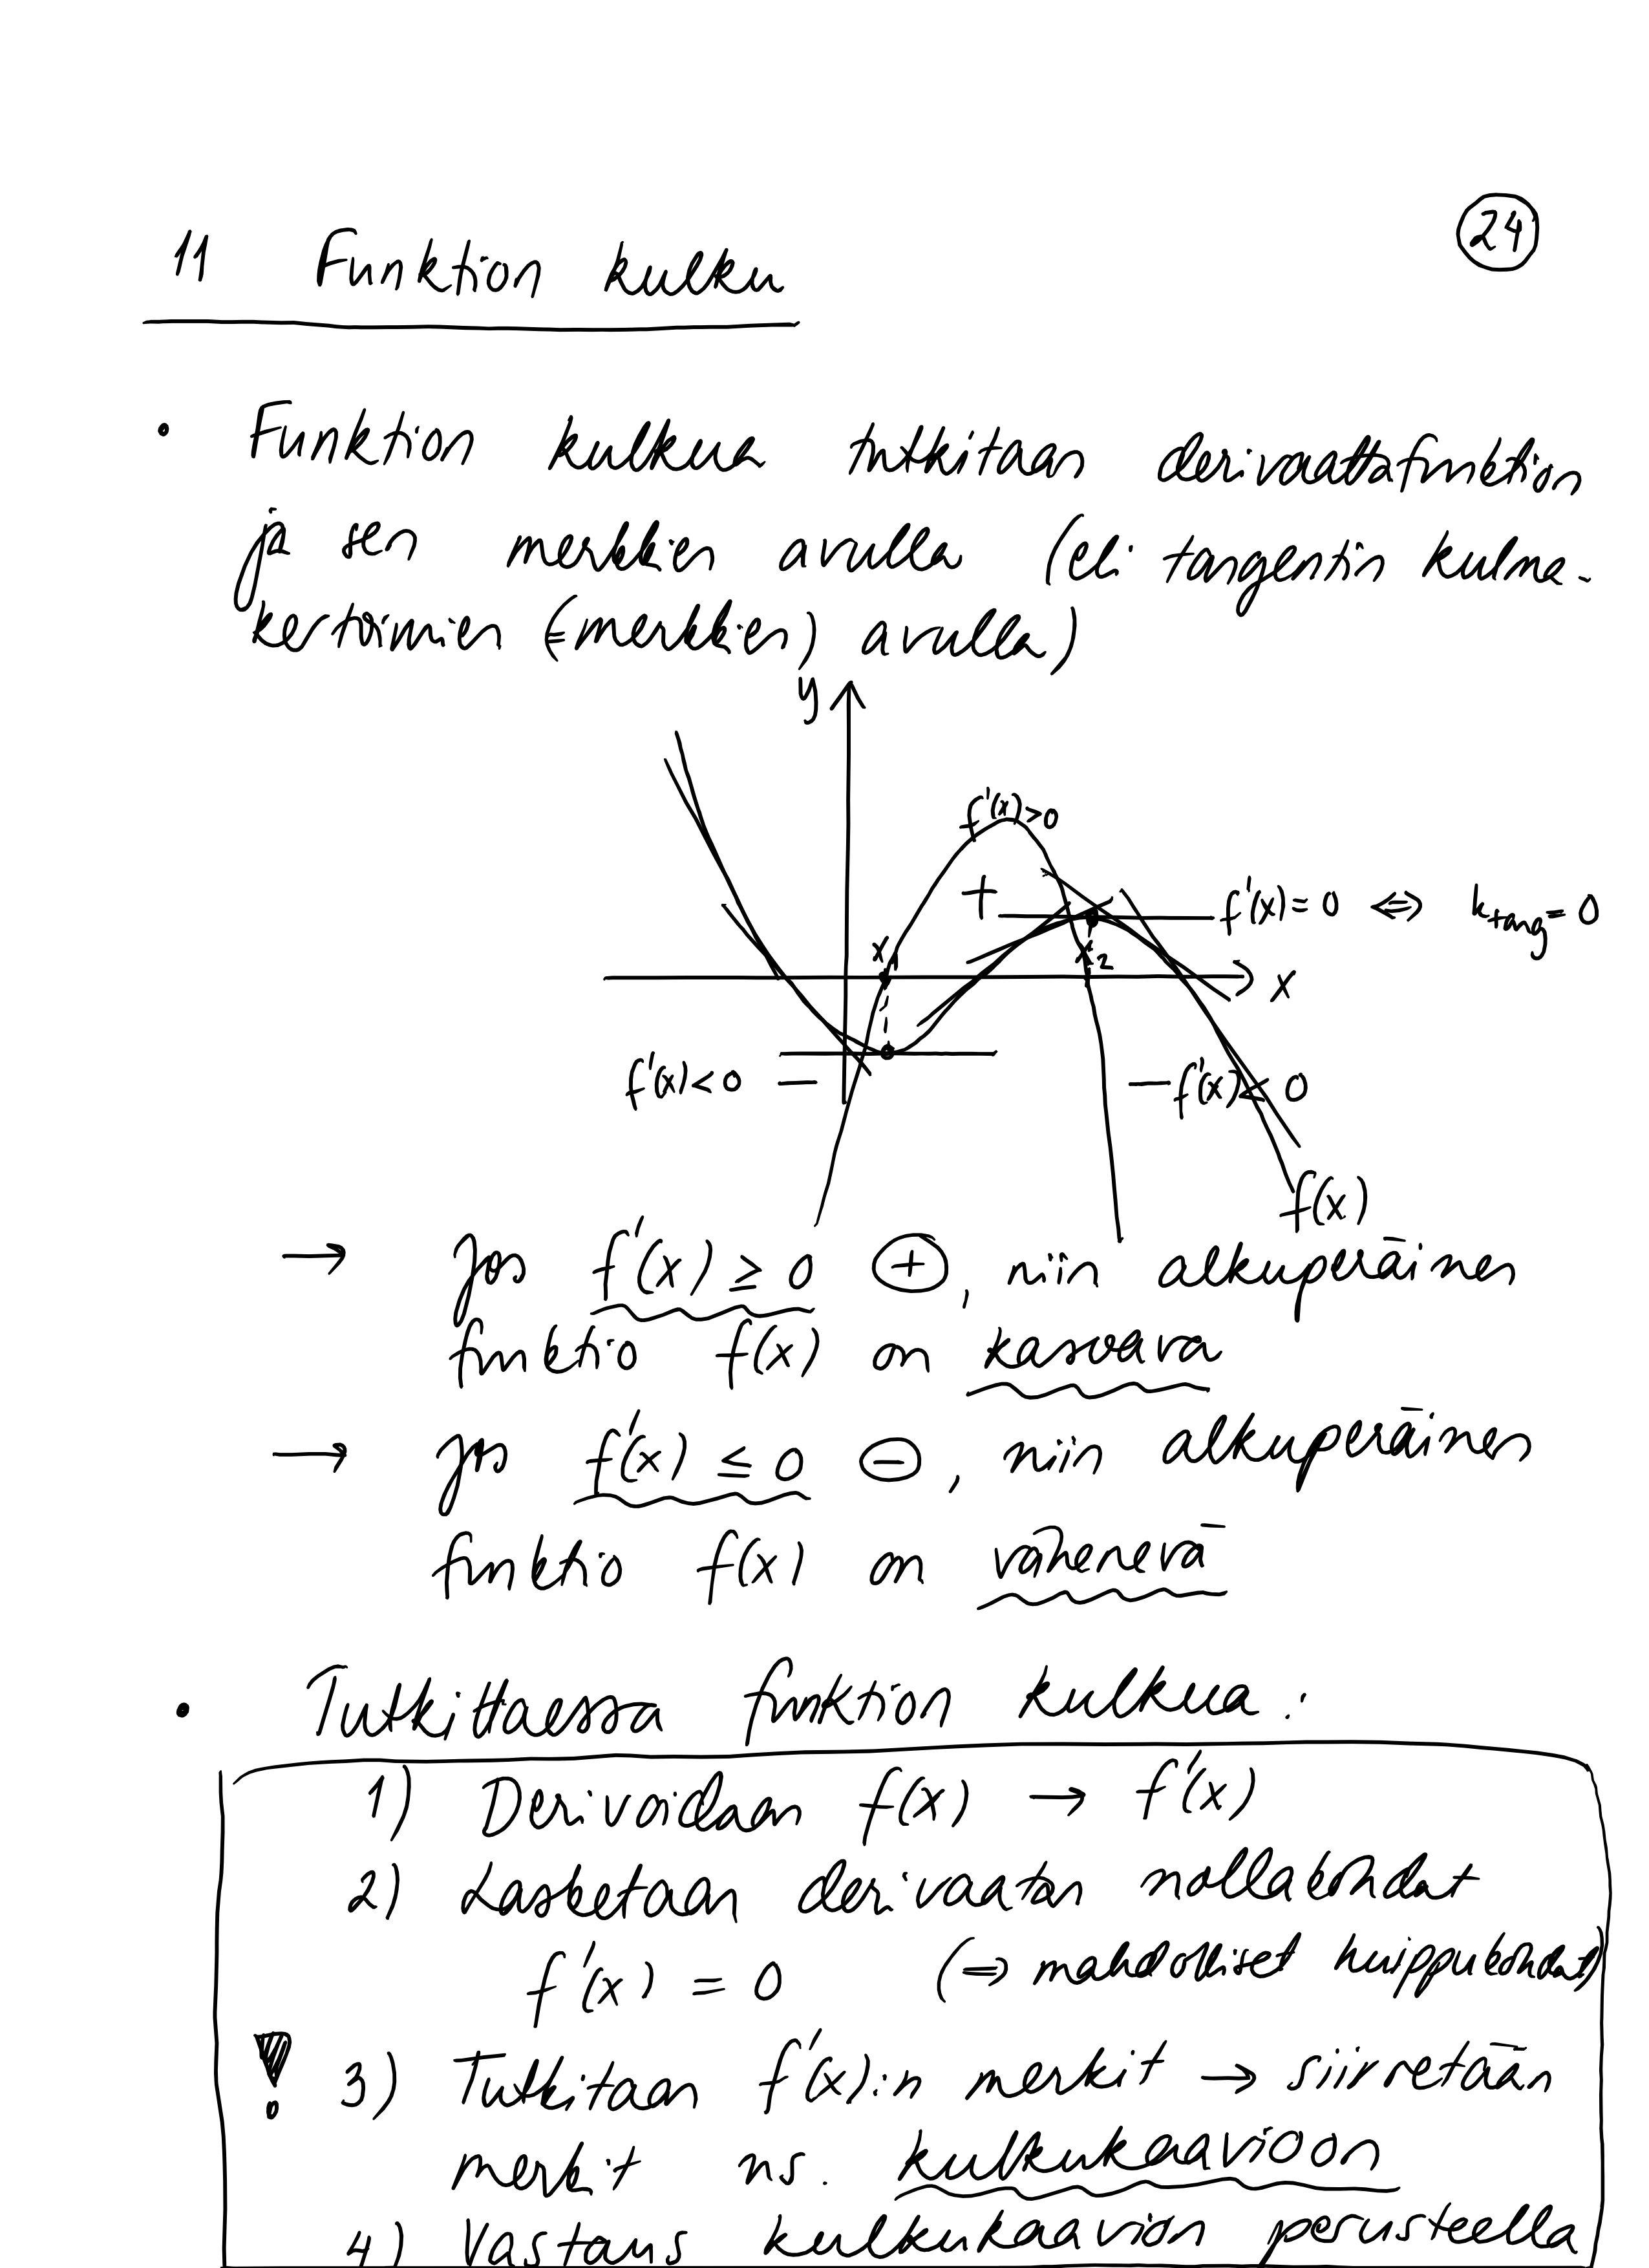 24
11 Funktion kulku
• Funktion kulkua tutkitaan derivaattafunktion
ja sen merkkien avulla (eli tangentin kulma-
kertoimien (=merkkien) avulla)
y
f'(x)>0
+
f'(x)=0 ⇔ k_tang=0
x₁
x₂
x
f'(x)<0 —
— f'(x)<0
f(x)
→ Jos f'(x) ≥ 0 ⊕, niin alkuperäinen
funktio f(x) on kasvava
→ Jos f'(x) ≤ 0 ⊖, niin alkuperäinen
funktio f(x) on vähenevä
• Tutkittaessa funktion kulkua:
1) Derivoidaan f(x) → f'(x)
2) Lasketaan derivaatan nollakohdat
f'(x) = 0 (⇒ mahdolliset huippukohdat)
! 3) Tutkitaan f'(x):n merkit → siirretään
merkit ns. kulkukaavioon
4) Vastaus kulkukaavion perusteella